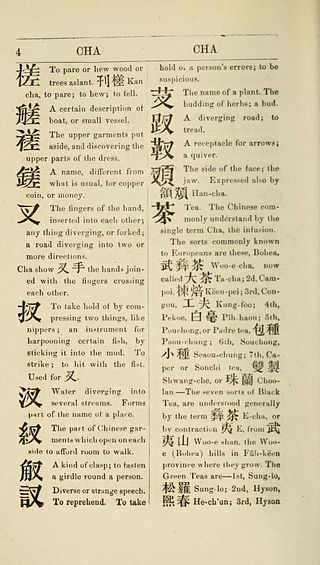 4
CHA
CHA
槎 To pare or hew wood or
trees aslant. 刊槎 Kan
cha, to pare; to hew; to fell.
艖 A certain description of
boat, or small vessel.
褨 The upper garments put
aside, and discovering the
upper parts of the dress.
鎈 A name, different from
what is usual, for copper
coin, or money.
叉 The fingers of the hand,
inserted into each other;
any thing diverging, or forked;
a road diverging into two or
more directions.
Cha show 叉手 the hands join-
ed with the fingers crossing
each other.
扠 To take hold of by com-
pressing two things, like
nippers; an instrument for
harpooning certain fish, by
sticking it into the mud. To
strike; to hit with the fist.
Used for 叉.
汊 Water diverging into
several streams. Forms
part of the name of a place.
The part of Chinese gar-
ments which open on each
side to afford room to walk.
A kind of clasp; to fasten
a girdle round a person.
訍 Diverse or strange speech.
To reprehend. To take
hold of a person's errors; to be
suspicious.
芆 The name of a plant. The
budding of herbs; a bud.
A diverging road; to
tread.
靫 A receptacle for arrows;
a quiver.
The side of the face; the
jaw. Expressed also by
Han-cha.
茶 Tea. The Chinese com-
monly understand by the
single term Cha, the infusion.
The sorts commonly known
to Europeans are these, Bohea,
武彝茶 Woo-e cha, now
called 大茶 Ta-cha; 2d, Cam-
poi, 揀焙 Këen-pei; 3rd, Con-
gou, 工夫 Kung-foo; 4th,
Pekoe, 白毫 Pĭh-haou; 5th,
Pouchong, or Padre tea, 包種
Paou-chung; 6th, Souchong,
小種 Seaou-chung; 7th, Ca-
per or Sonchi tea, 雙製
Shwang-che, or 珠蘭 Choo-
lan.—The seven sorts of Black
Tea, are understood generally
by the term 彝茶 E-cha, or
by contraction 夷 E, from 武
夷山 Woo-e shan, the Woo-
e (Bohea) hills in Fŭh-këen
province where they grow. The
Green Teas are—1st, Sung-lo,
松羅 Sung-lo; 2nd, Hyson,
熙春 He-ch'un; 3rd, Hyson